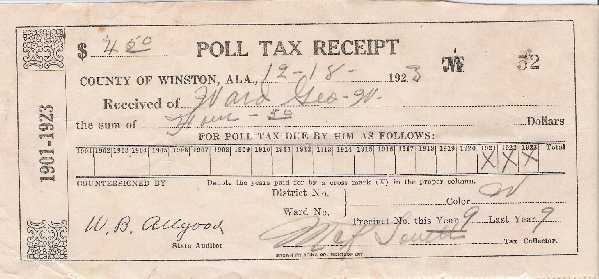 $ 4 50 POLL TAX RECEIPT No 32
COUNTY OF WINSTON, ALA., 12-18- 1923
Received of Ward Geo. W.
the sum of Four - 50 Dollars
FOR POLL TAX DUE BY HIM AS FOLLOWS:
1901 1902 1903 1904 1905 1906 1907 1908 1909 1910 1911 1912 1913 1914 1915 1916 1917 1918 1919 1920 1921 1922 1923 Total
X X X
1901-1923
COUNTERSIGNED BY Denote the years paid for by a cross mark (X) in the proper column.
District No. Color W
W. B. Allgood Ward No. Precinct No. this Year 9 Last Year 9
State Auditor Tax Collector.